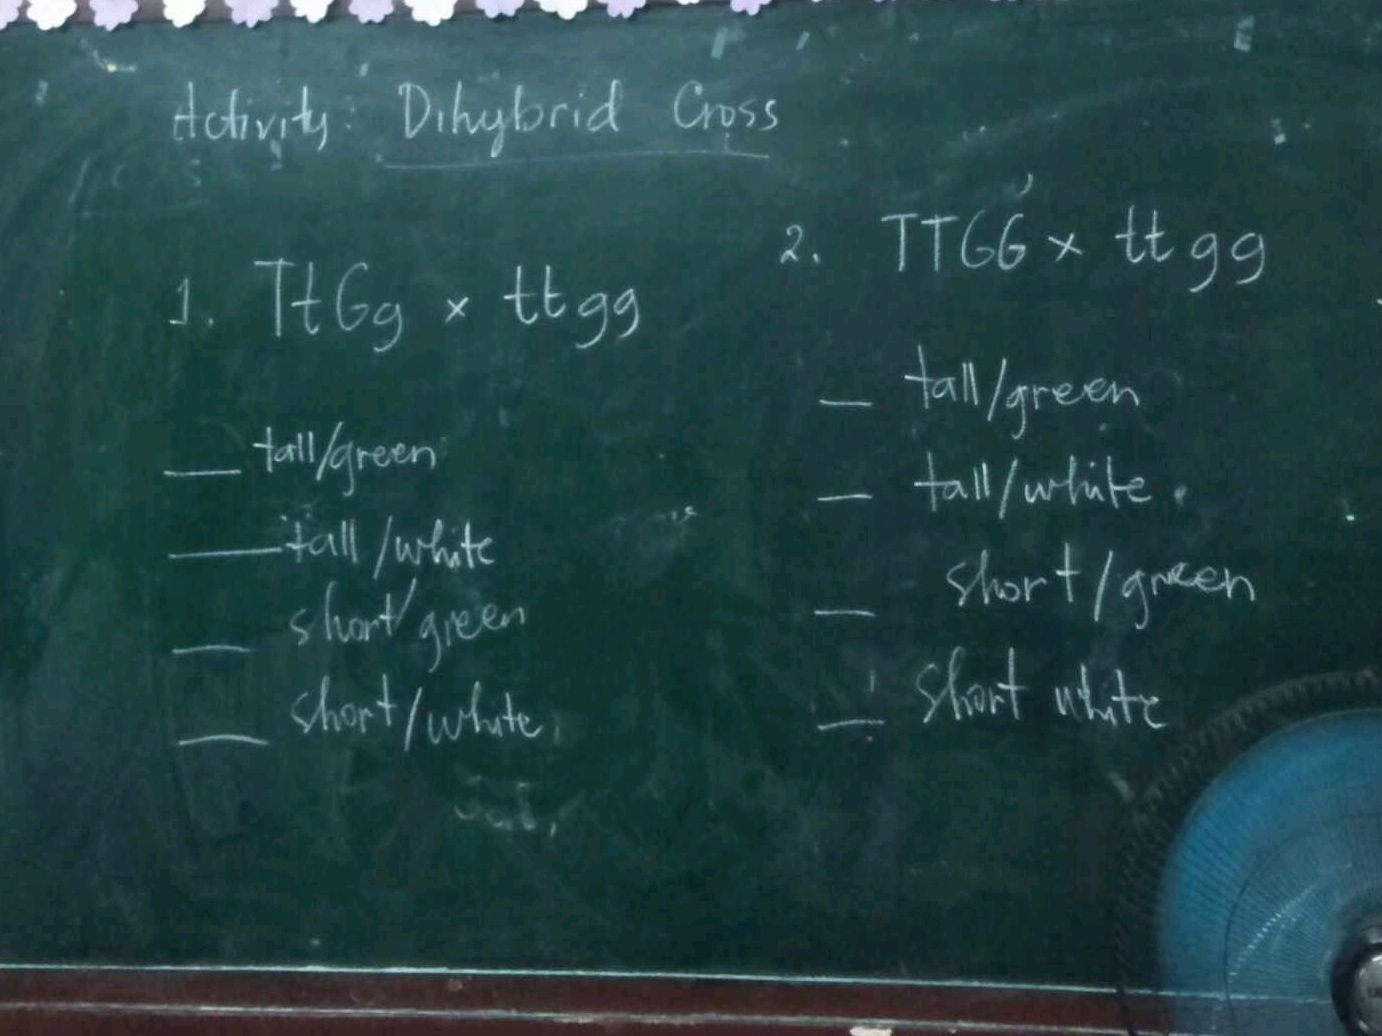 Activity: Dihybrid Cross
1. TtGg × ttgg
__ tall/green
__ tall/white
__ short/green
__ short/white
2. TTGG × ttgg
__ tall/green
__ tall/white
__ short/green
__ short white